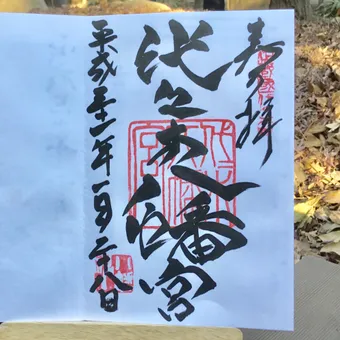 奉拝
代々木八幡宮
平成三十一年一月二十八日